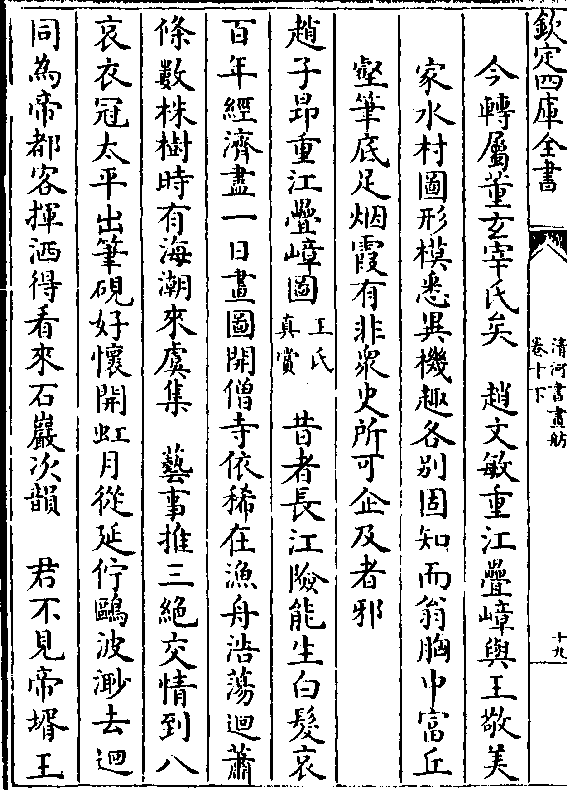 欽定四庫全書
清河書畫舫
卷十下
十九
今轉屬董玄宰氏矣　趙文敏重江疊嶂與王敬美
家水村圖形模悉異機趣各别固知而翁胸中富丘
壑筆底足烟霞有非衆史所可企及者邪
趙子昂重江疊嶂圖　王氏
真賞　昔者長江險能生白髮哀
百年經濟盡一日畫圖開僧寺依稀在漁舟浩蕩迴蕭
條數株樹時有海潮來虞集　藝事推三絶交情到八
哀衣冠太平出筆硯好懷開虹月從延佇鷗波渺去迴
同為帝都客揮洒得看來石巖次韻　君不見帝壻王